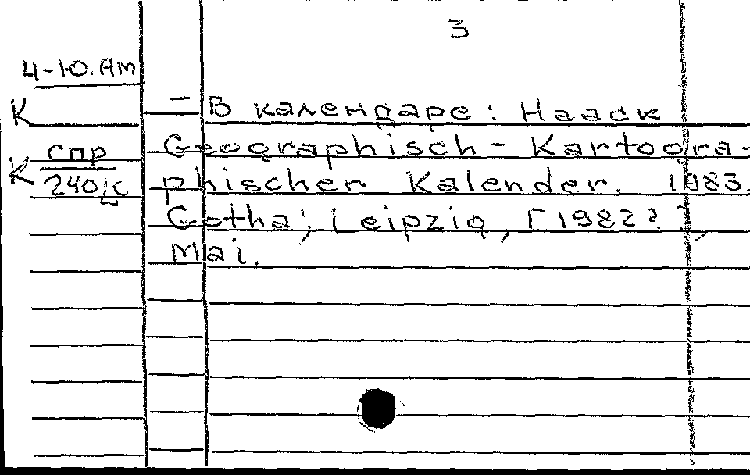 3
4-10.Am
К
– В календаре: Haack
Geographisch-Kartogra-
phischer Kalender. 1983.
К спр
240/с
Gotha; Leipzig, [1982?],
Mai.